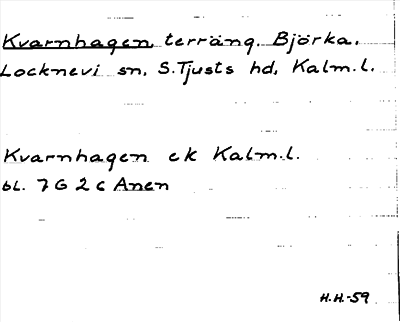 Kvarnhagen, terräng. Björka.
Locknevi sn, S. Tjusts hd, Kalm.l.
Kvarnhagen ek Kalm.l.
bl. 7 G 2 c Anen
H.H.-59